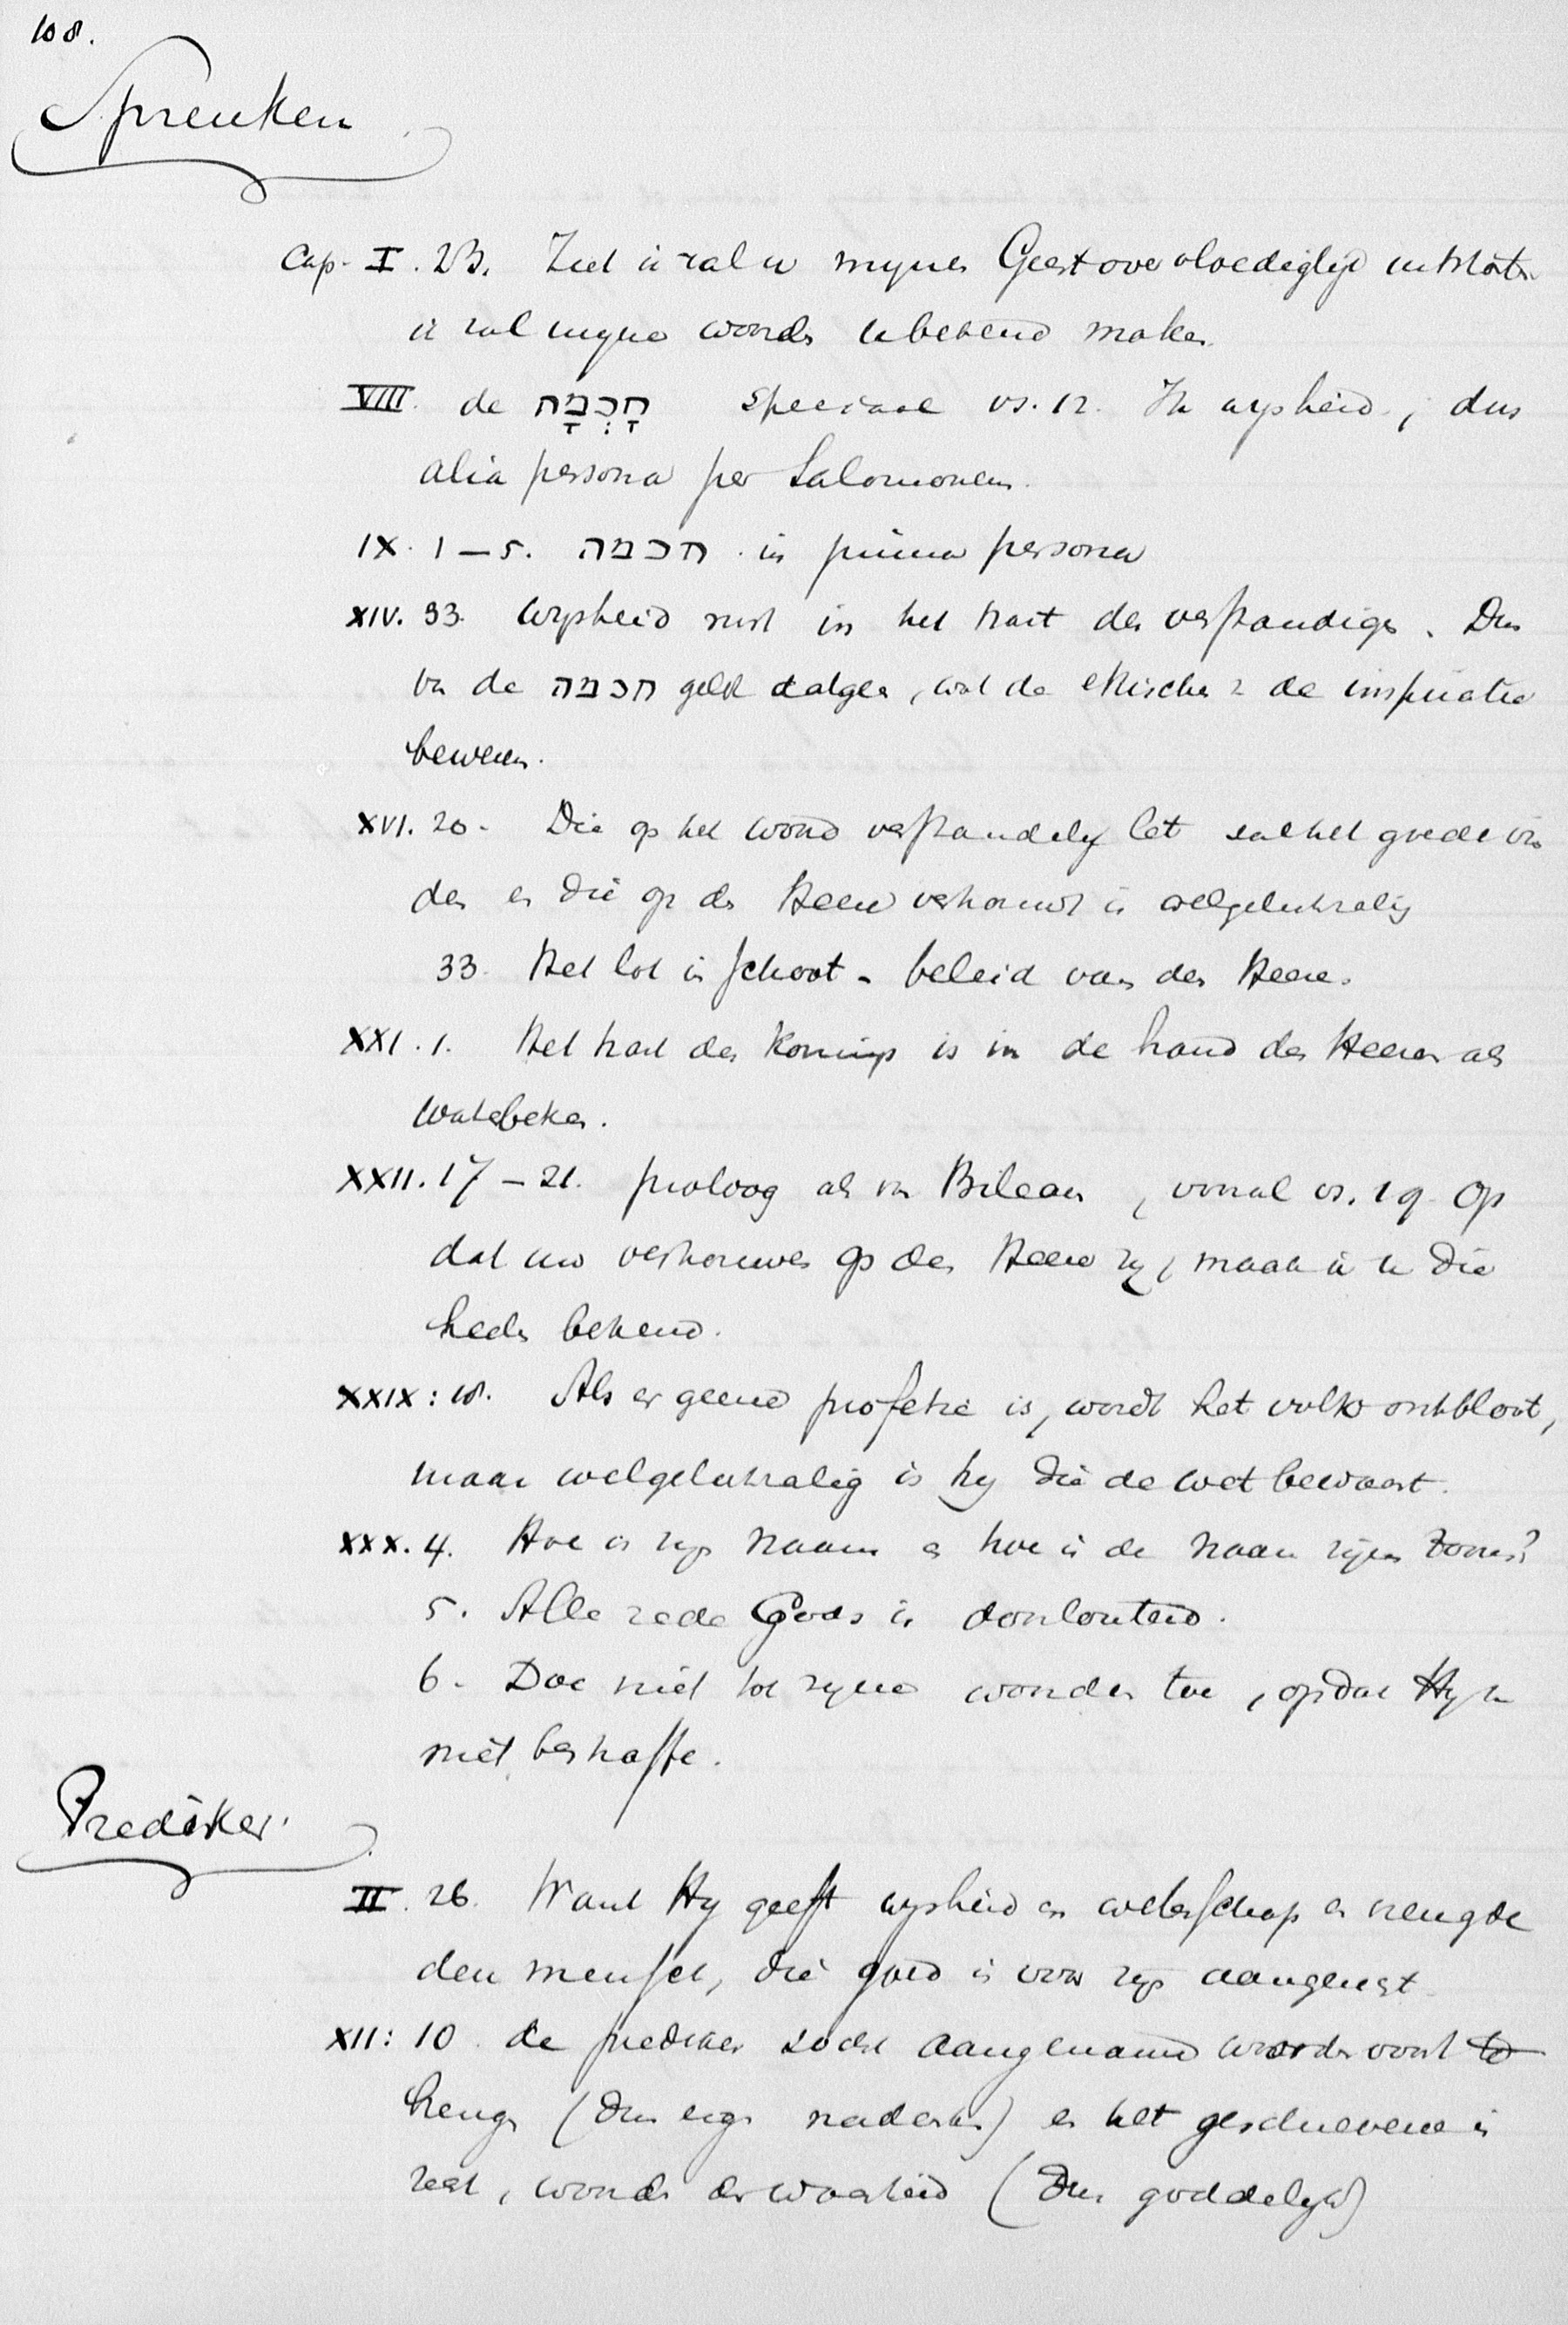 108.
Spreuken
Cap. I. 23. Ziet ik zal u mynen Geest overvloediglijk uitstorten
ik zal myne woorden u bekend maken.
VIII. de חָכְמָה speciaal vs. 12. Ik wysheid, dus
alia persona per Salomonem.
IX. 1–5. חכמה in prima persona
XIV. 33. Wysheid rust in het hart des verstandigen. Dus
van de חכמה geldt datgen, wat de ethischen v de inspiratie
beweren.
XVI. 20. Die op het woord verstandelyk let zal het goede vin
den en die op den Heere vertrouwt is welgelukzalig
33. Het lot in schoot - beleid van den Heere.
XXI. 1. Het hart des Konings is in de hand des Heeren als
waterbeken.
XXII. 17–21. proloog als van Bileam, vooral vs. 19 Op
dat uw vertrouwen op den Heere zy, maak ik u die
heden bekend.
XXIX: 18. Als er geene profetie is, wordt het volk ontbloot,
maar welgelukzalig is hy die de wet bewaart.
XXX. 4. Hoe is zyn Naam en hoe is de Naam zijns Zoons?
5. Alle rede Gods is doorlouterd.
6. Doe niet tot zyne woorden toe, opdat Hy u
niet bestraffe.
Prediker.
II. 26. Want Hy geeft wysheid en wetenschap en vreugde
den mensch, die goed is voor zyn aangezicht
XII: 10. de prediker zocht aangename woorden voort te
brengen (dus eigen nadenken) en het geschrevene is
recht, woorden der waarheid (dus goddelyk)